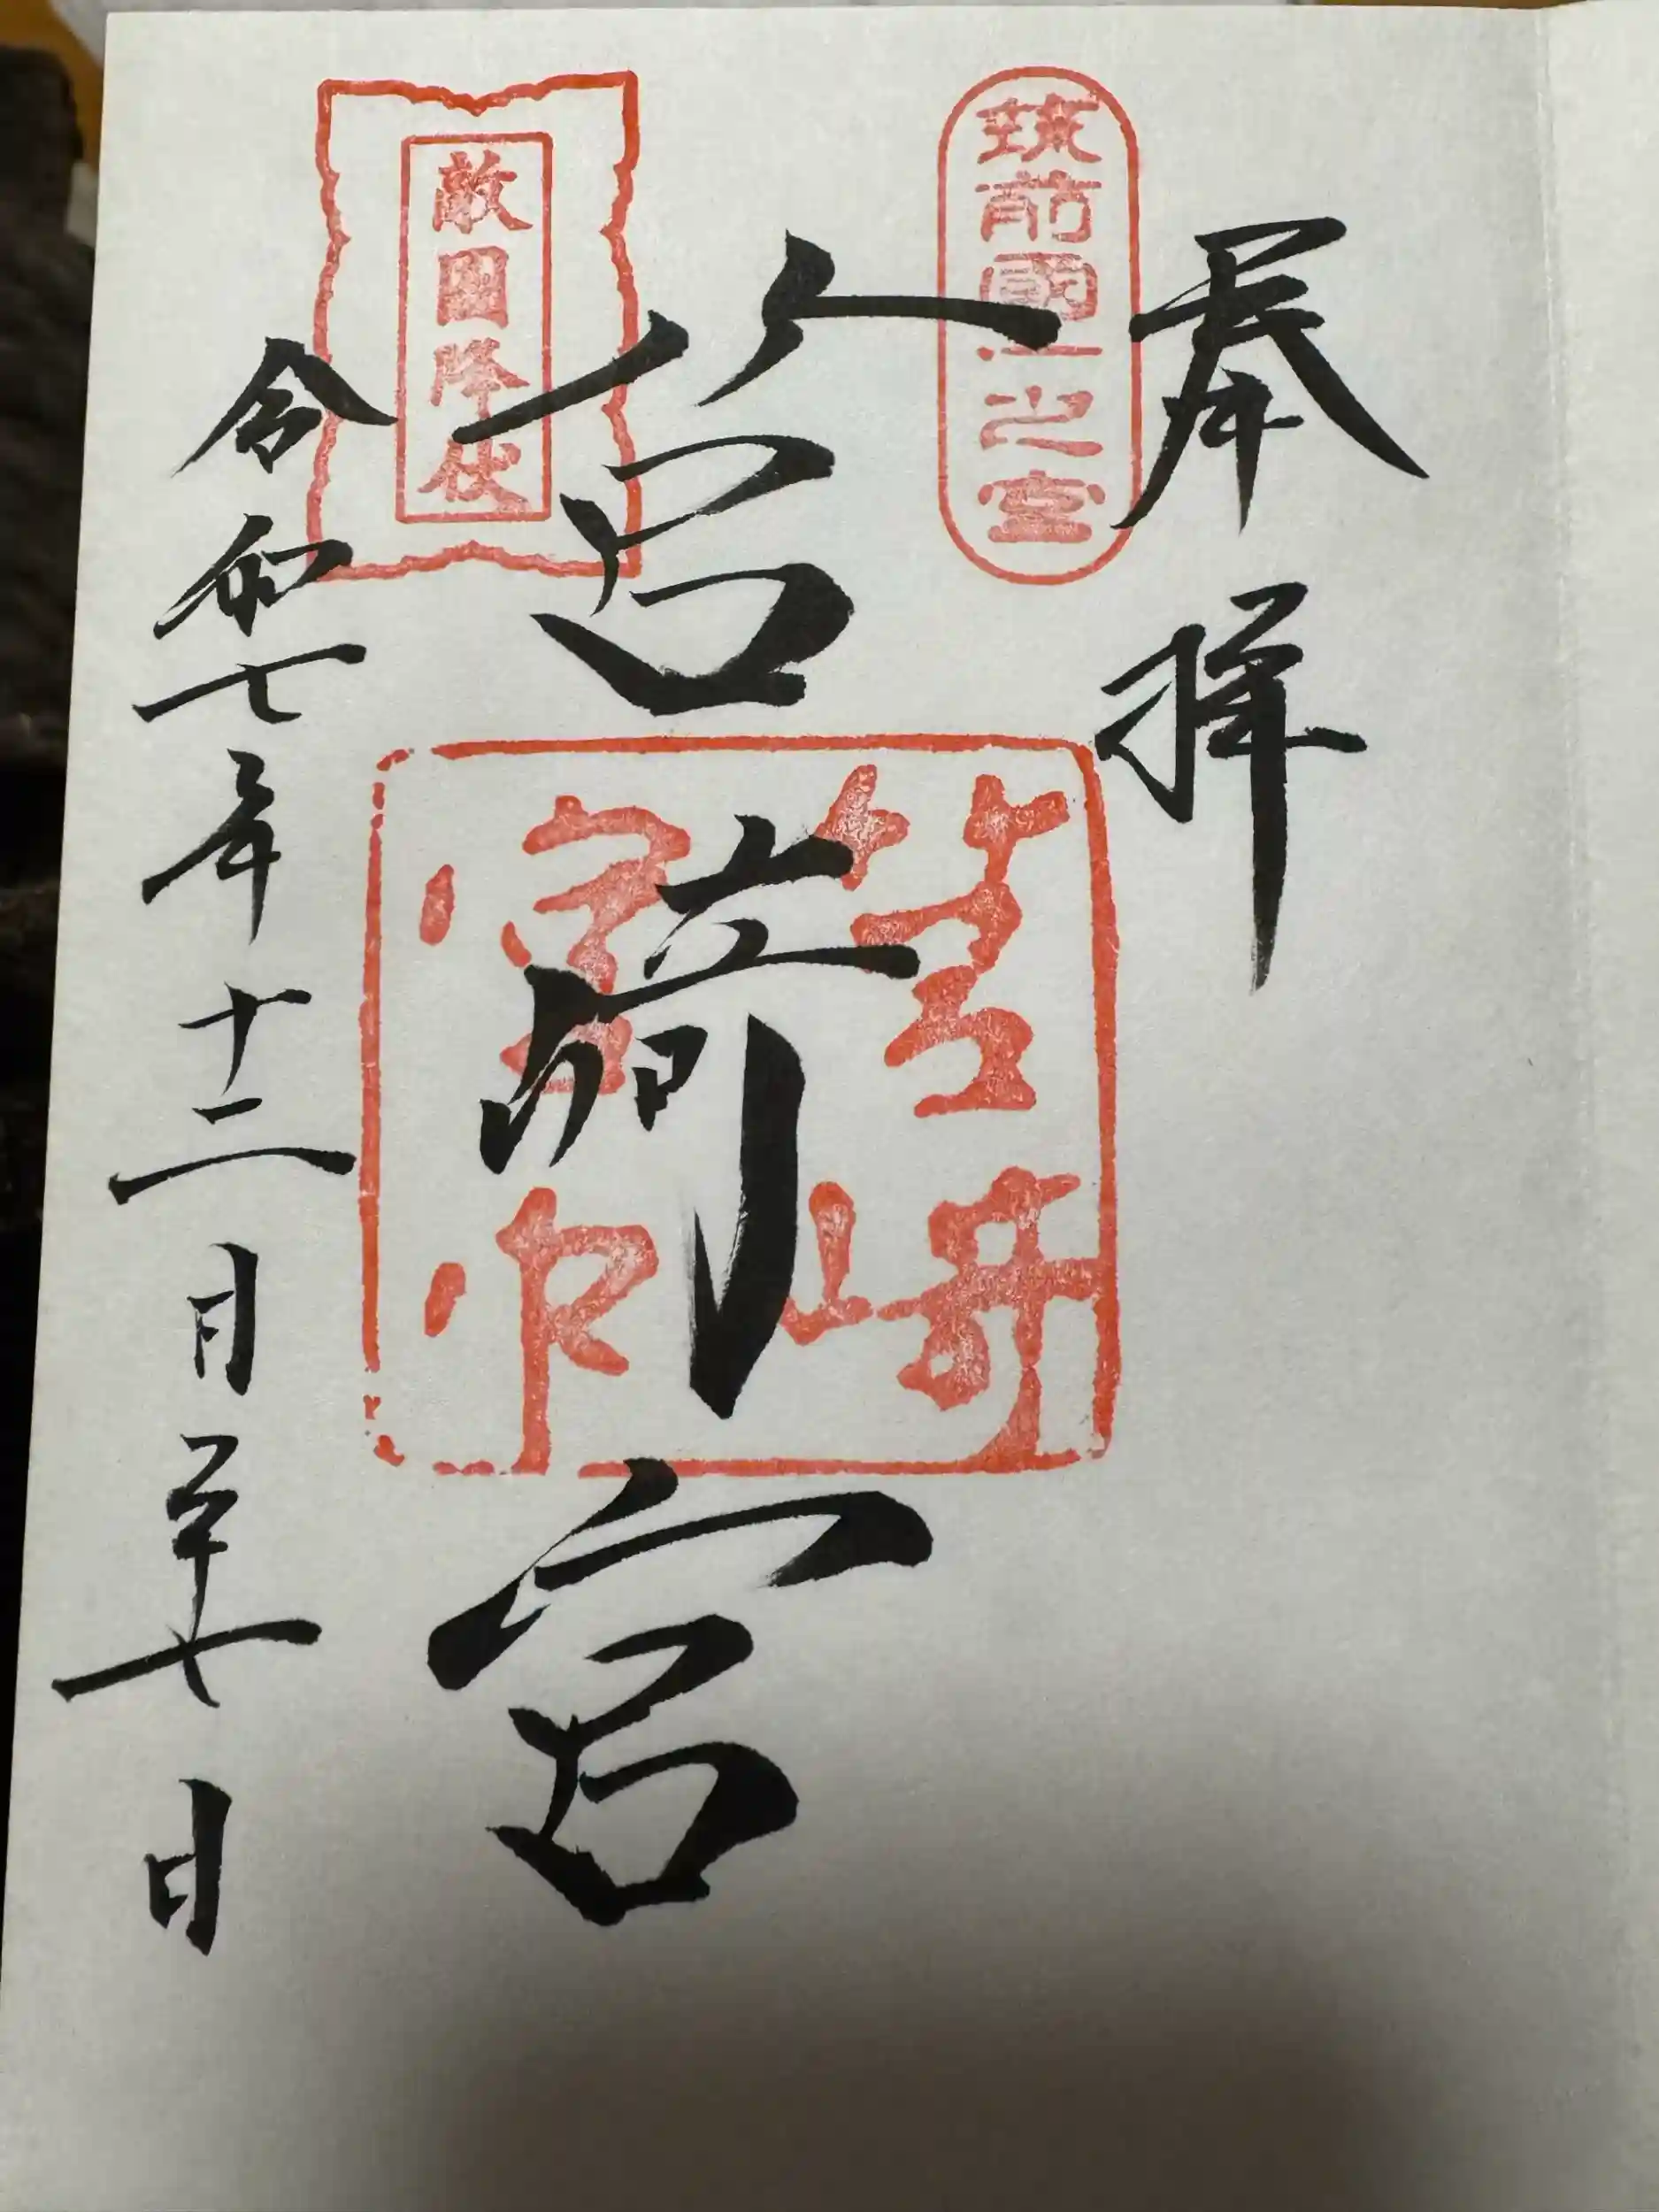 奉拝
筑前國一之宮
筥崎宮
筥崎宮印
敵国降伏
令和七年十二月二十七日